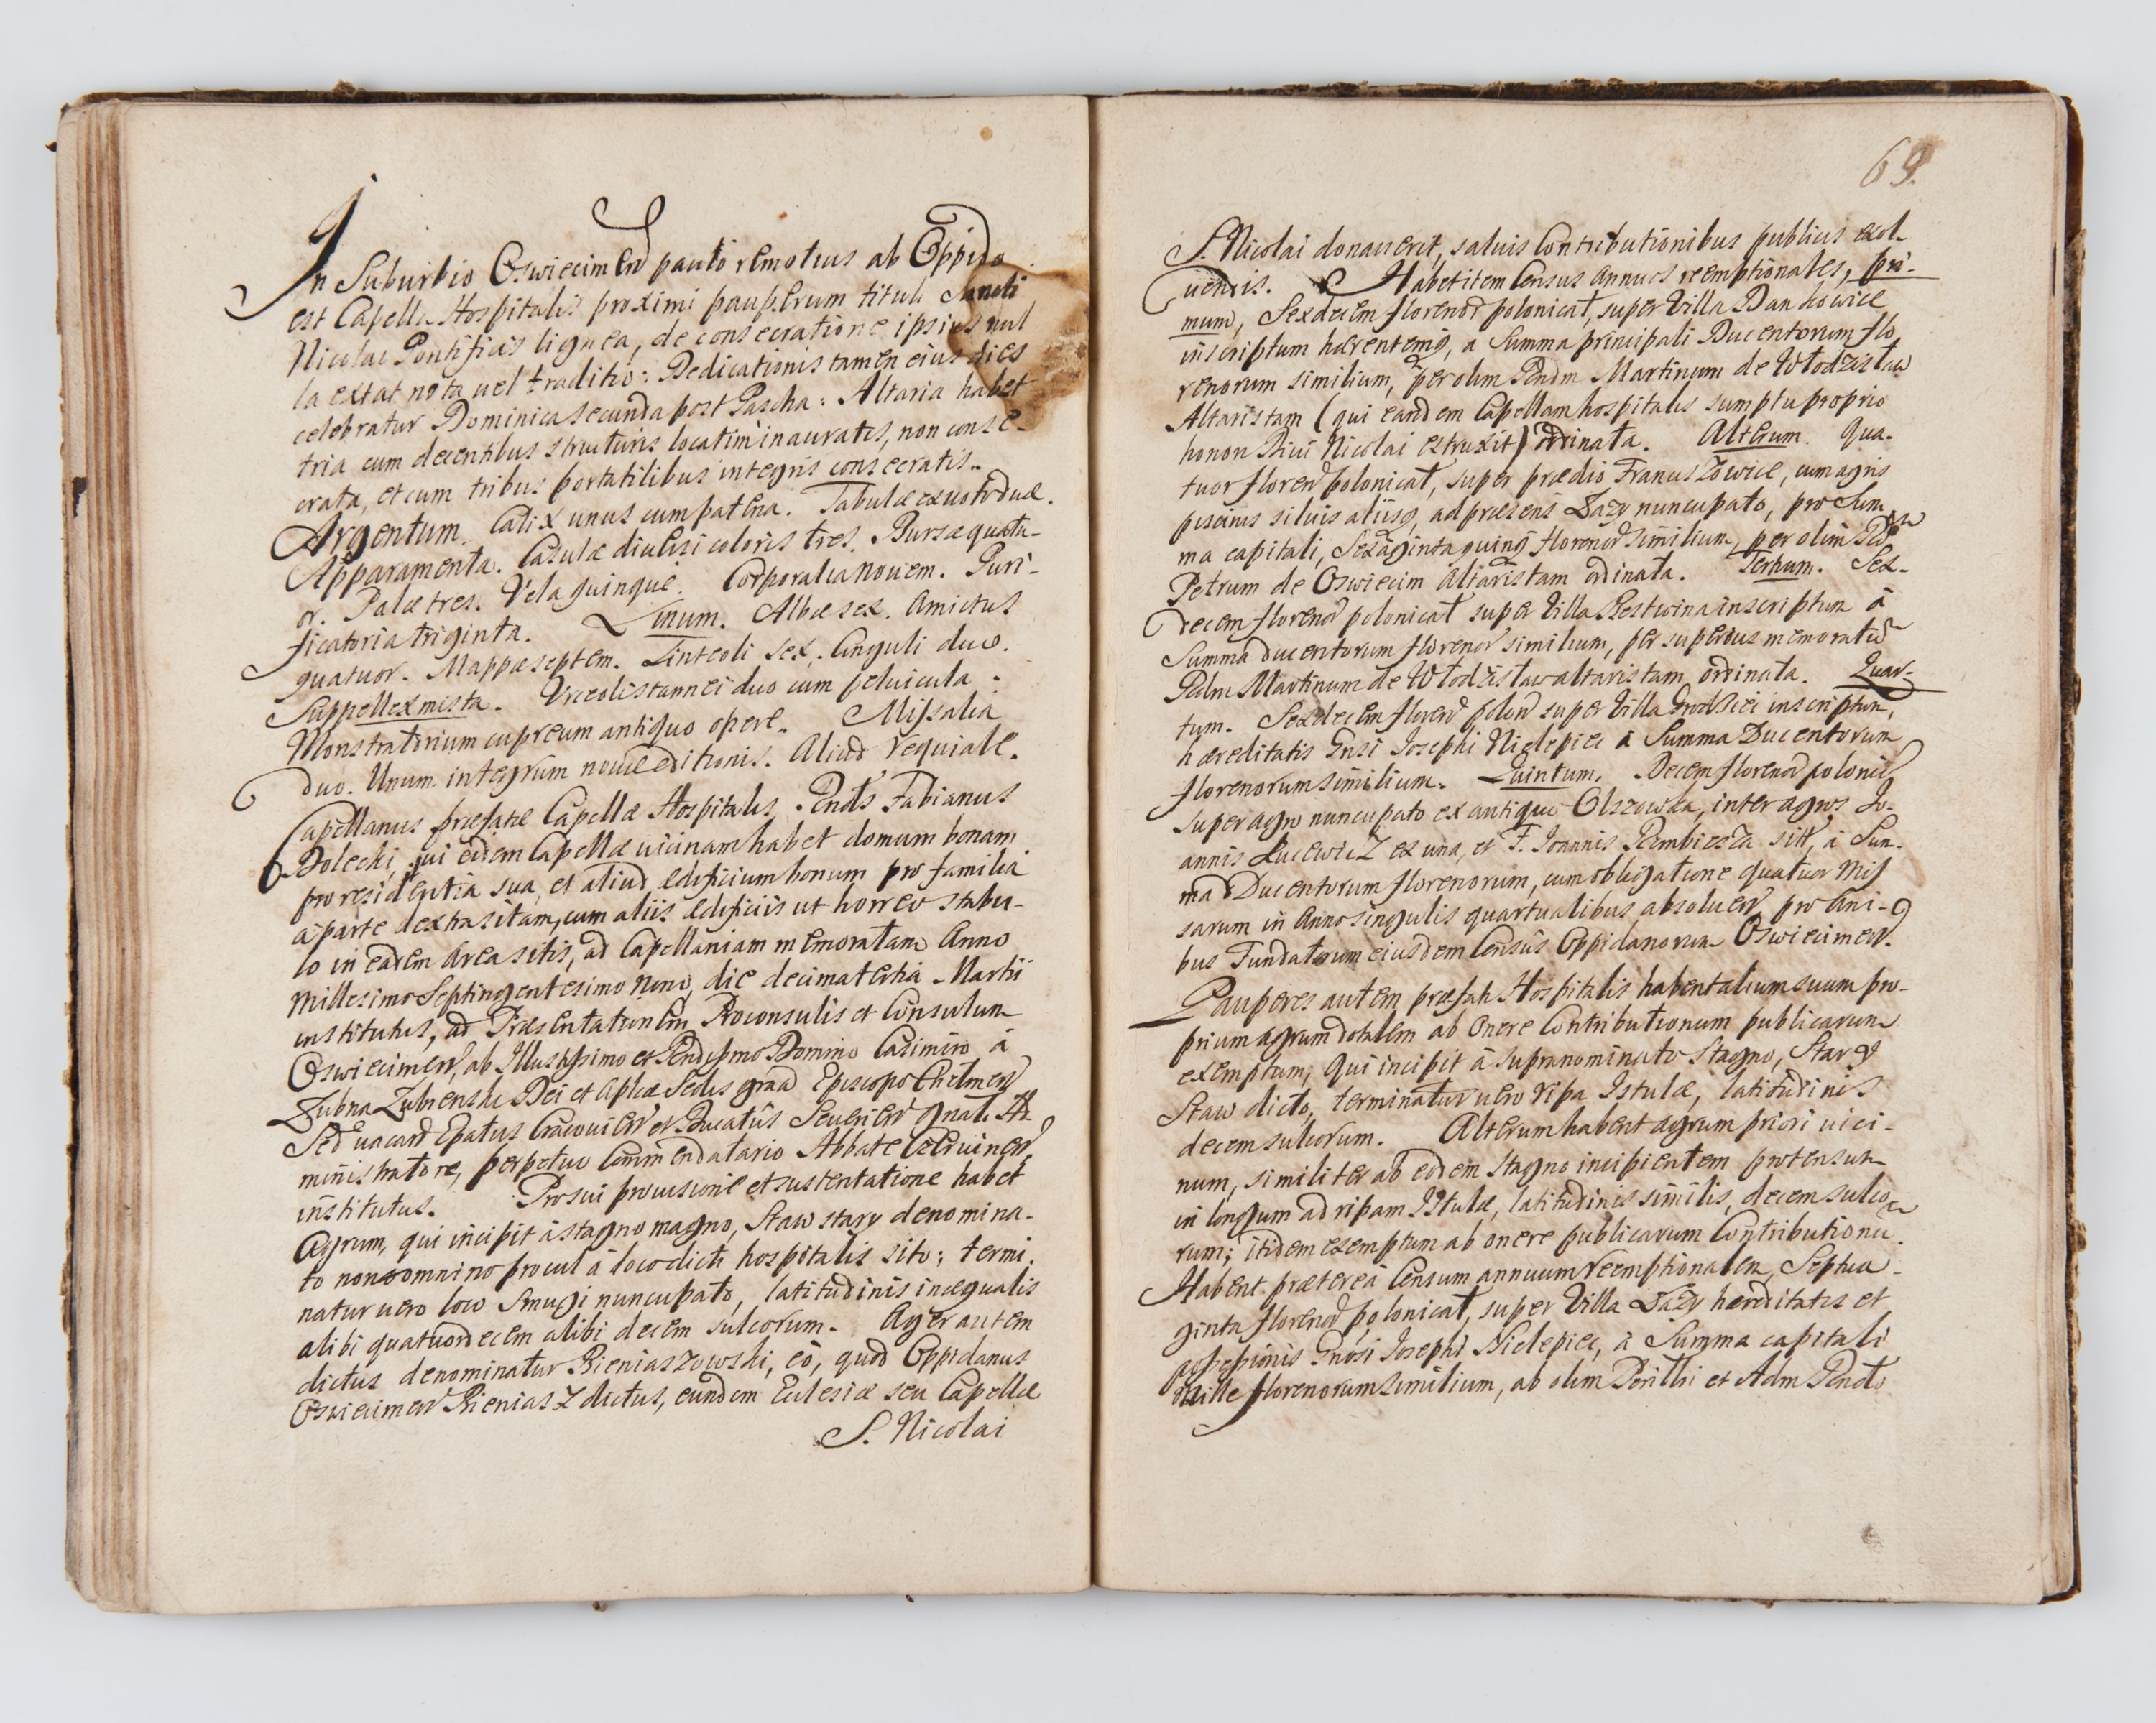 In Suburbio Oswiecimen paulo remotius ab Oppido
est Capella Hospitalis proximi pauperum tituli Sancti
Nicolai Pontificis lignea, de consecratione ipsius nul
la extat nota uel traditio: Dedicationis tamen eius dies
celebratur Dominica secunda post Pascha: Altaria habet
tria cum decentibus structuris locatim inauratis, non conse-
crata, et cum tribus portatilibus integris consecratis.
Argentum. Calix unus cum patena. Tabulæ ex uoto duæ.
Apparamenta. Casulæ diuersi coloris tres. Bursæ quatu-
or. Palæ tres. Vela quinque. Corporalia nouem. Puri-
ficatoria triginta. Linum. Albæ sex. Amictus
quatuor. Mappæ septem. Linteoli sex. Cinguli duo.
Suppellex mista. Urceoli stannei duo cum peluicula.
Monstratorium cupreum antiquo opere. Missalia
duo. Unum integrum nouæ editionis. Aliud requiale.
Capellanus præfatæ Capellæ Hospitalis. Rndus Fabianus
Dolecki, qui eidem Capellæ uicinam habet domum bonam
pro residentia sua, et aliud ædificium bonum pro familia
a parte dextra sitam, cum aliis ædificiis ut horreo stabu-
lo in eadem area sitis, ad Capellaniam memoratam Anno
Millesimo Septingentesimo Nono, die decima tertia Martii
institutus, ad Præsentationem Proconsulis et Consulum
Oswiecimen, ab Illustrissimo et Rndissmo Domino Casimiro à
Łubna Łubienski Dei et Aplicæ Sedis graa Episcopo Chelmen
Sede uacan Epatus Cracouien et Ducatûs Seuerien Gnali Ad-
ministratore, perpetuo Commendatario Abbate Czeruinen
institutus. Pro sui prouisione et sustentatione habet
Agrum, qui incipit à stagno magno, Staw stary denomina-
to non omnino procul à loco dicti hospitalis sito; termi
natur uero loco Smugi nuncupato, latitudinis inæqualis
alibi quatuordecem alibi decem sulcorum. Ager autem
dictus denominatur Bieniaszowski, eò, quod Oppidanus
Oswiecimen Bieniasz dictus, eundem Eclesiæ seu Capellæ
S. Nicolai
69.
S. Nicolai donauerit, saluis Contributionibus publicis exol-
uendis. Habet item Census annuos reemptionales, pri-
mum, Sexdecem floren polonical, super Villa Dankowice
inscriptum hærentemq, a Summa principali Ducentorum flo
renorum similium, per olim Rndm Martinum de Włodzisław
Altaristam (qui eandem Capellam hospitalis sumptu proprio
honori Diui Nicolai extruxit) ordinata. Alterum. Qua-
tuor floren polonical, super prædio Franuszowice, cum agris
piscinis siluis aliisq, ad præsens Łazy nuncupato, pro Sum
ma capitali, Sexaginta quinq floren similium, per olim Rdm
Petrum de Oswiecim altaristam ordinata. Tertium. Sex-
decem floren polonical super Villa Bestwina inscriptum à
Summa ducentorum floren similium, per superius memoratum
Rndm Martinum de Włodzisław altaristam ordinata. Quar-
tum. Sexdecem floren polon super Villa Grodziei inscriptum,
hæreditatis Gnsi Josephi Nielepiec à Summa Ducentorum
florenorum similium. Quintum. Decem floren polonic
super agro nuncupato ex antiquo Olszowka, inter agros Jo-
annis Łucewicz ex una, et F. Joannis sitt, à Sum-
ma Ducentorum florenorum, cum obligatione quatuor Mis
sarum in Anno singulis quartualibus absoluen pro Ani-
bus Fundatorum eiusdem Censûs Oppidanorum Oswiecimen.
Pauperes autem præfati Hospitalis habent alium suum pro-
prium agrum dotalem ab onere Contributionum publicarum
exemptum, qui incipit à supranominato Stagno, Stary
Staw dicto, terminatur uero ripa Istulæ, latitudinis
decem sulcorum. Alterum habent agrum priori uici-
num, similiter ab eodem Stagno incipientem protensum
in longum ad ripam Istulæ, latitudinis similis, decem sulco
rum; itidem exemptum ab onere publicarum Contributionu.
Habent præterea Censum annuum reemptionalem, Septua-
ginta floren polonical, super Villa Łazy hæreditatis et
possessionis Gnosi Josephi Nielepiec, à Summa capitali
Mille florenorum similium, ab olim Perilli et Adm Rndo